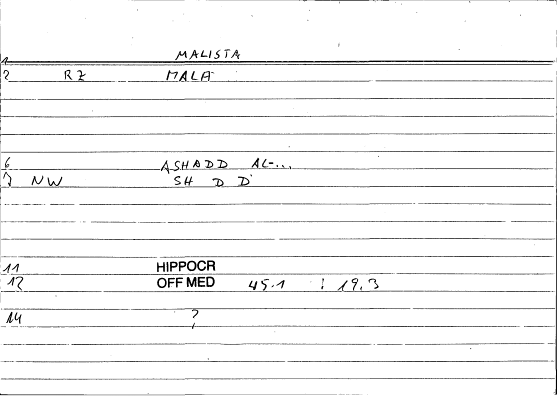 1 MALISTA
2 RZ MALA
6 ASHADD AL-...
7 NW SH D D
11 HIPPOCR
12 OFF MED 45.1 : 19.3
14 ?